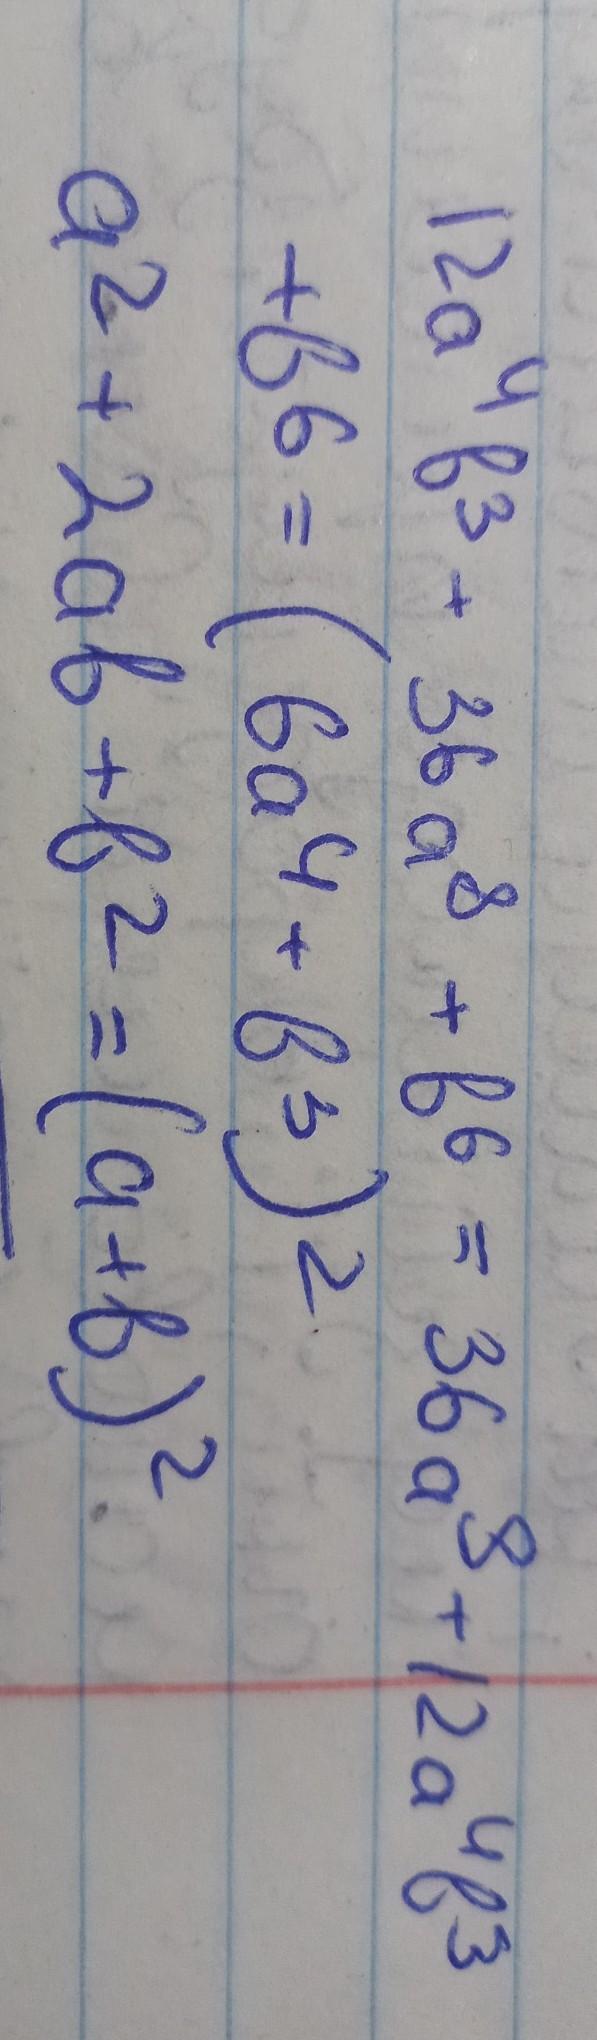 12a⁴b³ + 36a⁸ + b⁶ = 36a⁸ + 12a⁴b³
+ b⁶ = (6a⁴ + b³)²
a² + 2ab + b² = (a + b)²